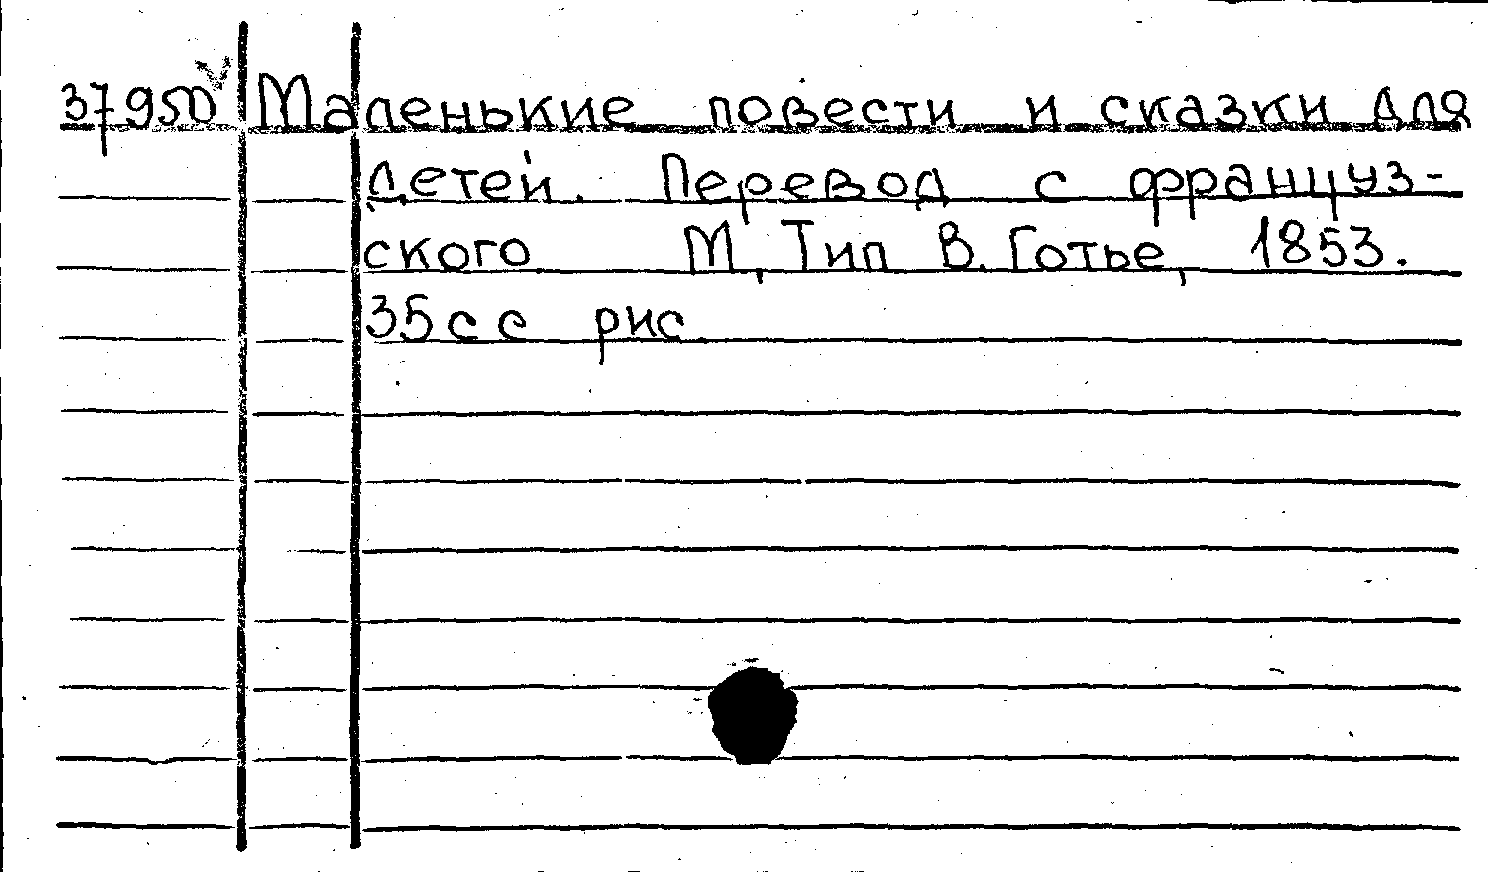 37950 Маленькие повести и сказки для
детей. Перевод с француз-
ского М, Тип В. Готье, 1853.
35 с с рис